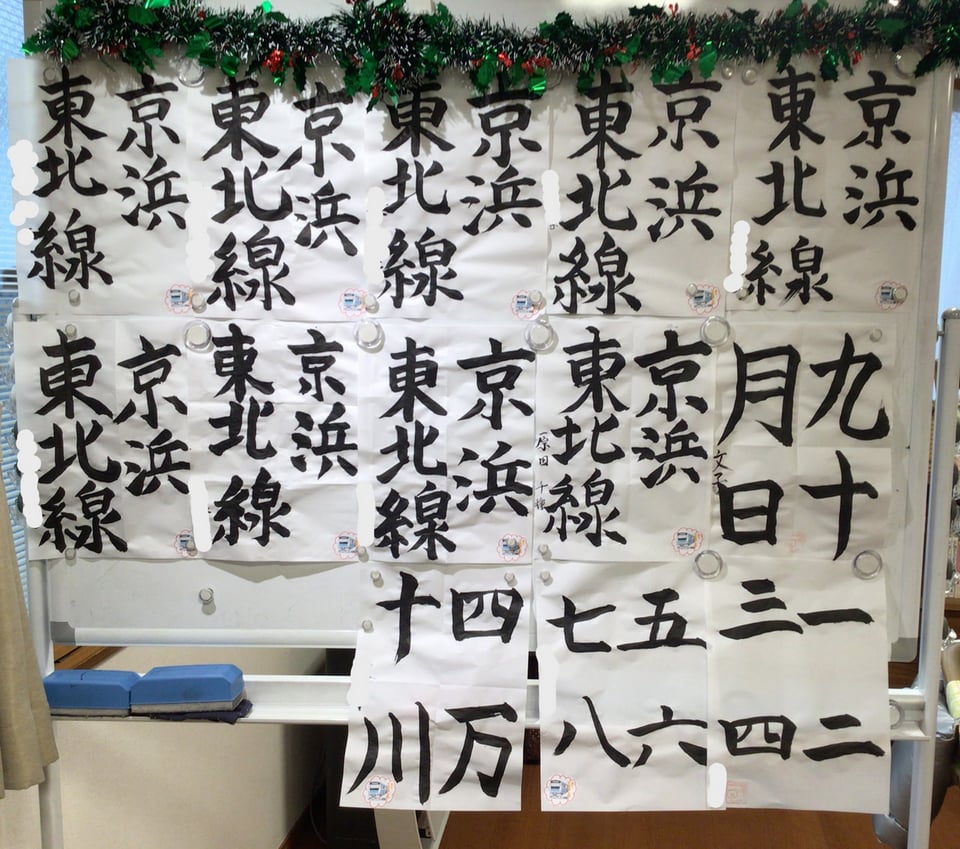 京浜
東北線
京浜
東北線
京浜
東北線
京浜
東北線
京浜
東北線
九十
月日
文子
京浜
東北線
原田
京浜
東北線
京浜
東北線
京浜
東北線
一二
三四
五六
七八
四万
十川